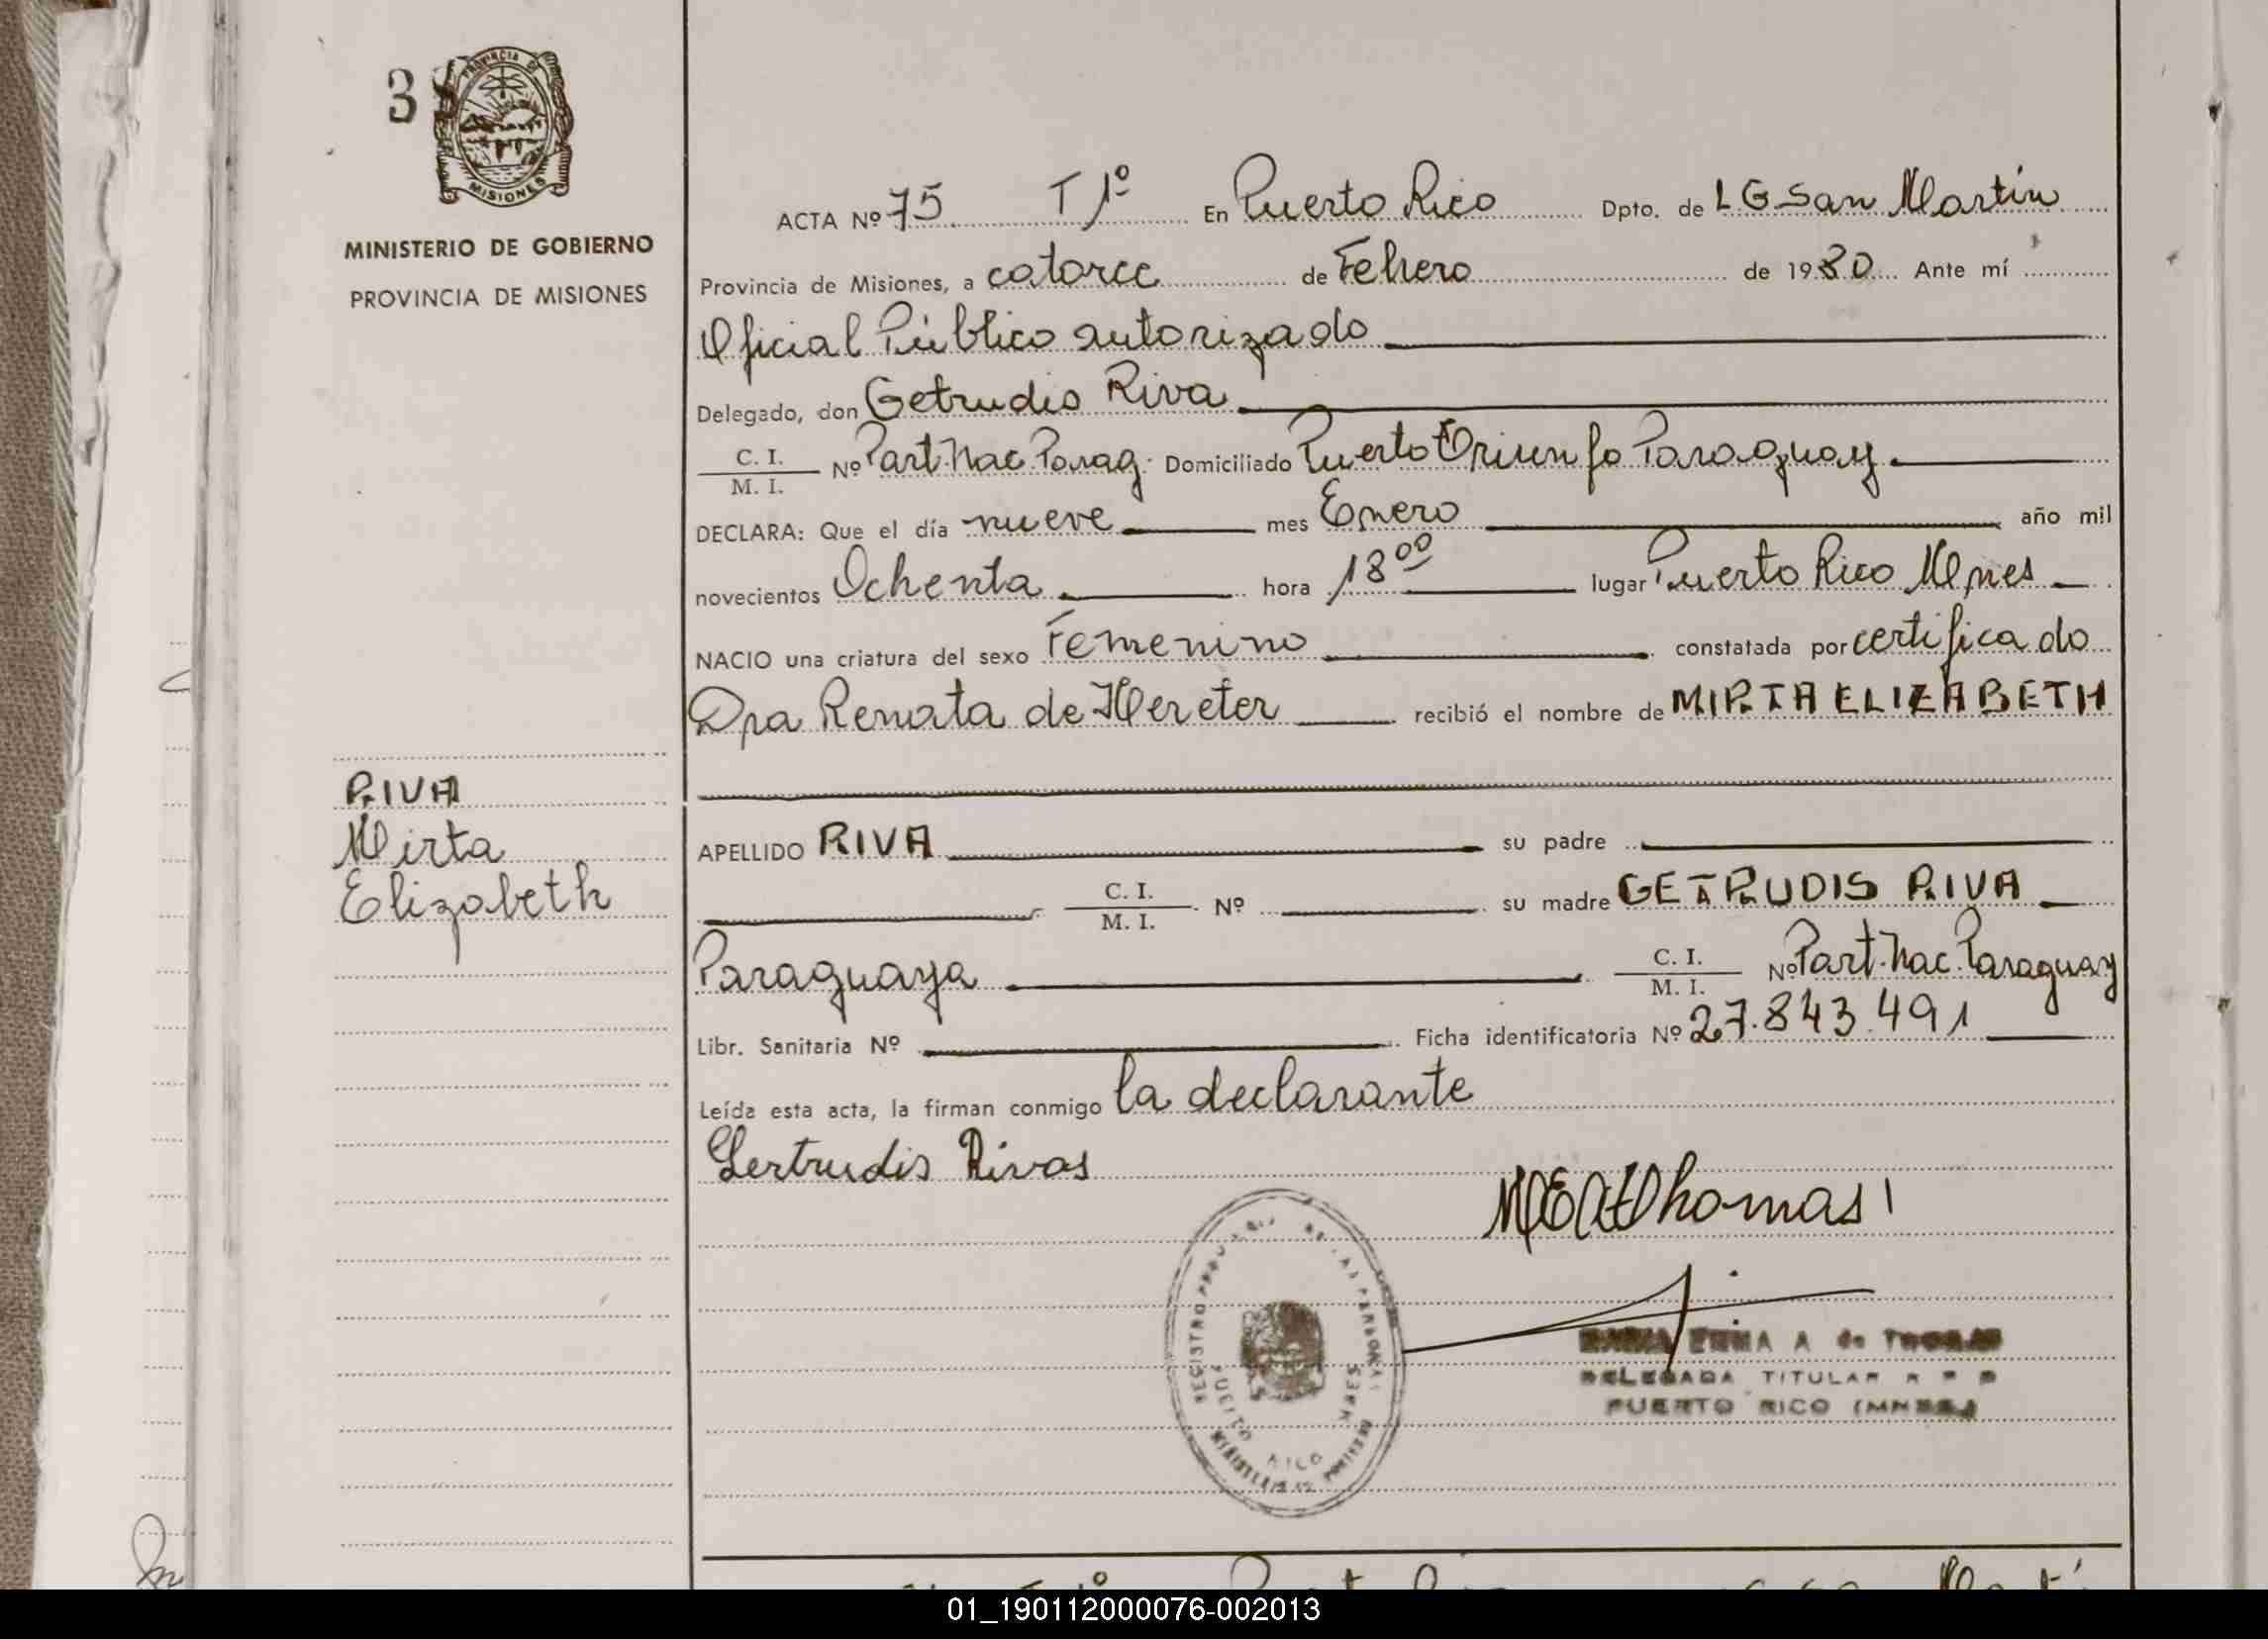 3
PROVINCIA DE
MISIONES
MINISTERIO DE GOBIERNO
PROVINCIA DE MISIONES
ACTA Nº 75 T 1º En Puerto Rico Dpto. de L G San Martín
Provincia de Misiones, a catorce de Febrero de 1980 Ante mí
Oficial Público autorizado
Delegado, don Getrudis Riva
C. I. / M. I. Nº Part. Nac. Parag. Domiciliado Puerto Triunfo Paraguay
DECLARA: Que el día nueve mes Enero año mil
novecientos Ochenta hora 18 00 lugar Puerto Rico Mnes
NACIO una criatura del sexo Femenino constatada por certificado
Dra Renata de Hereter recibió el nombre de MIRTA ELIZABETH
RIVA
Mirta
Elizabeth
APELLIDO RIVA su padre
C. I. / M. I. Nº su madre GETRUDIS RIVA
Paraguaya C. I. / M. I. Nº Part. Nac. Paraguay
Libr. Sanitaria Nº Ficha identificatoria Nº 27.843.491
Leída esta acta, la firman conmigo la declarante
Gertrudis Rivas
MEAdThomas
MARIA EMMA A de THOMAS
DELEGADA TITULAR R P P
PUERTO RICO (MNES.)
01_190112000076-002013